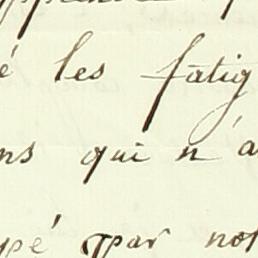 é les fatig
ns qui n'a
pé par not